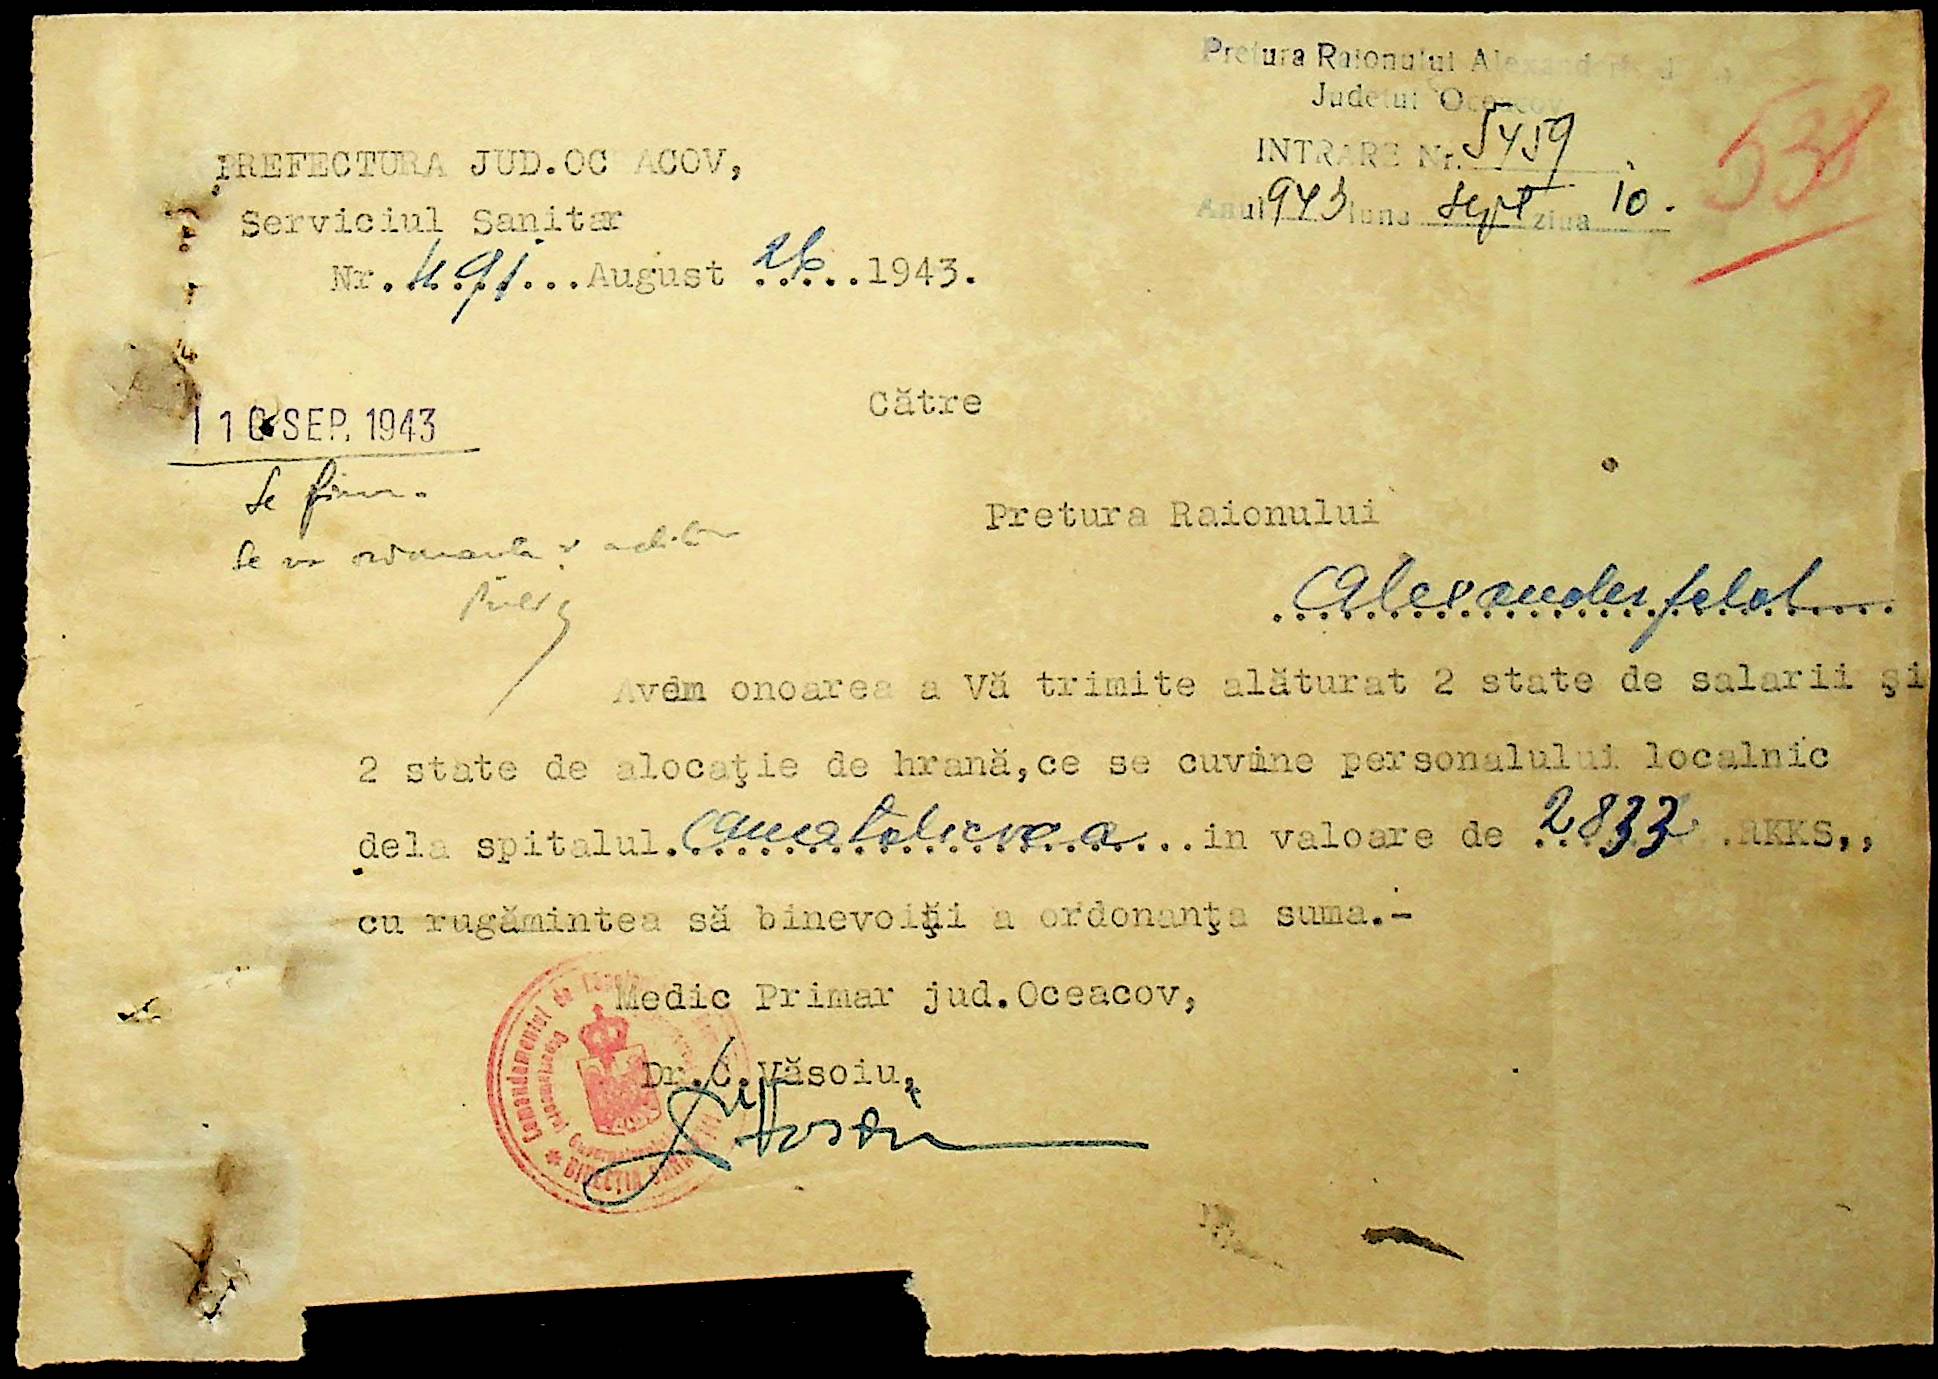 Pretura Raionului Alexanderfeld
Judetul Oceacov
INTRARE Nr. 5459
Anul 943 luna Sept ziua 10.
538
PREFECTURA JUD.OC ACOV,
Serviciul Sanitar
Nr. 491...August 26..1943.
10 SEP. 1943
Către
Se
Se va
Pretura Raionului
Alexanderfeld
Avem onoarea a Vă trimite alăturat 2 state de salarii şi
2 state de alocaţie de hrană,ce se cuvine personalului localnic
dela spitalul. ...in valoare de 2833 .RKKS,,
cu rugămintea să binevoiţi a ordonanţa suma.-
Medic Primar jud.Oceacov,
Dr.C.Văsoiu,
Comandamentul de
Guvernământul
DIRECŢIA